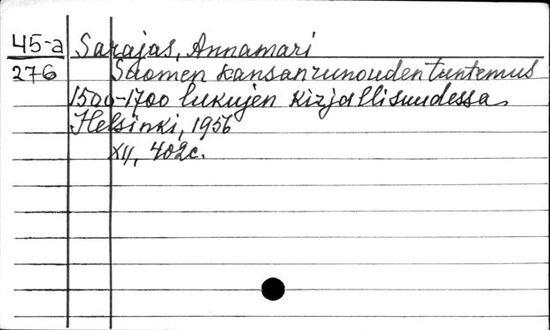 45-a Sarajas, Annamari
276 Suomen kansanrunouden tuntemus
1500-1700 lukujen kirjallisuudessa.
Helsinki, 1956
XII, 402c.